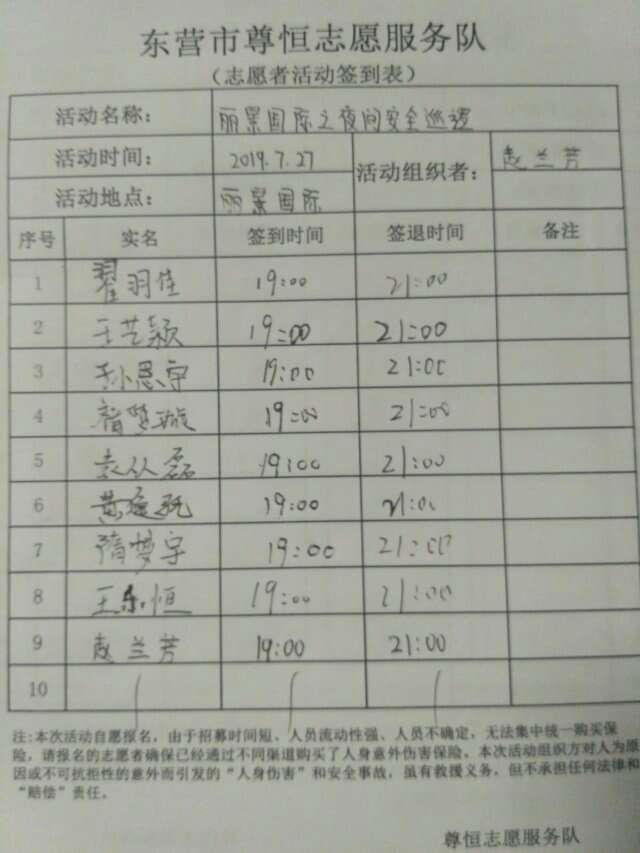 东营市尊恒志愿服务队
（志愿者活动签到表）
活动名称： 丽景国际之夜间安全巡逻
活动时间： 2019.7.27 活动组织者： 赵兰芳
活动地点： 丽景国际
序号 实名 签到时间 签退时间 备注
1 翟羽佳 19:00 21:00
2 王艺颖 19:00 21:00
3 孙恩宇 19:00 21:00
4 19:00 21:00
5 袁从磊 19:00 21:00
6 19:00 21:00
7 隋梦宇 19:00 21:00
8 王乐恒 19:00 21:00
9 赵兰芳 19:00 21:00
10
注:本次活动自愿报名，由于招募时间短、人员流动性强、人员不确定，无法集中统一购买保
险，请报名的志愿者确保已经通过不同渠道购买了人身意外伤害保险。本次活动组织方对人为原
因或不可抗拒性的意外而引发的“人身伤害”和安全事故，虽有救援义务，但不承担任何法律和
“赔偿”责任。
尊恒志愿服务队